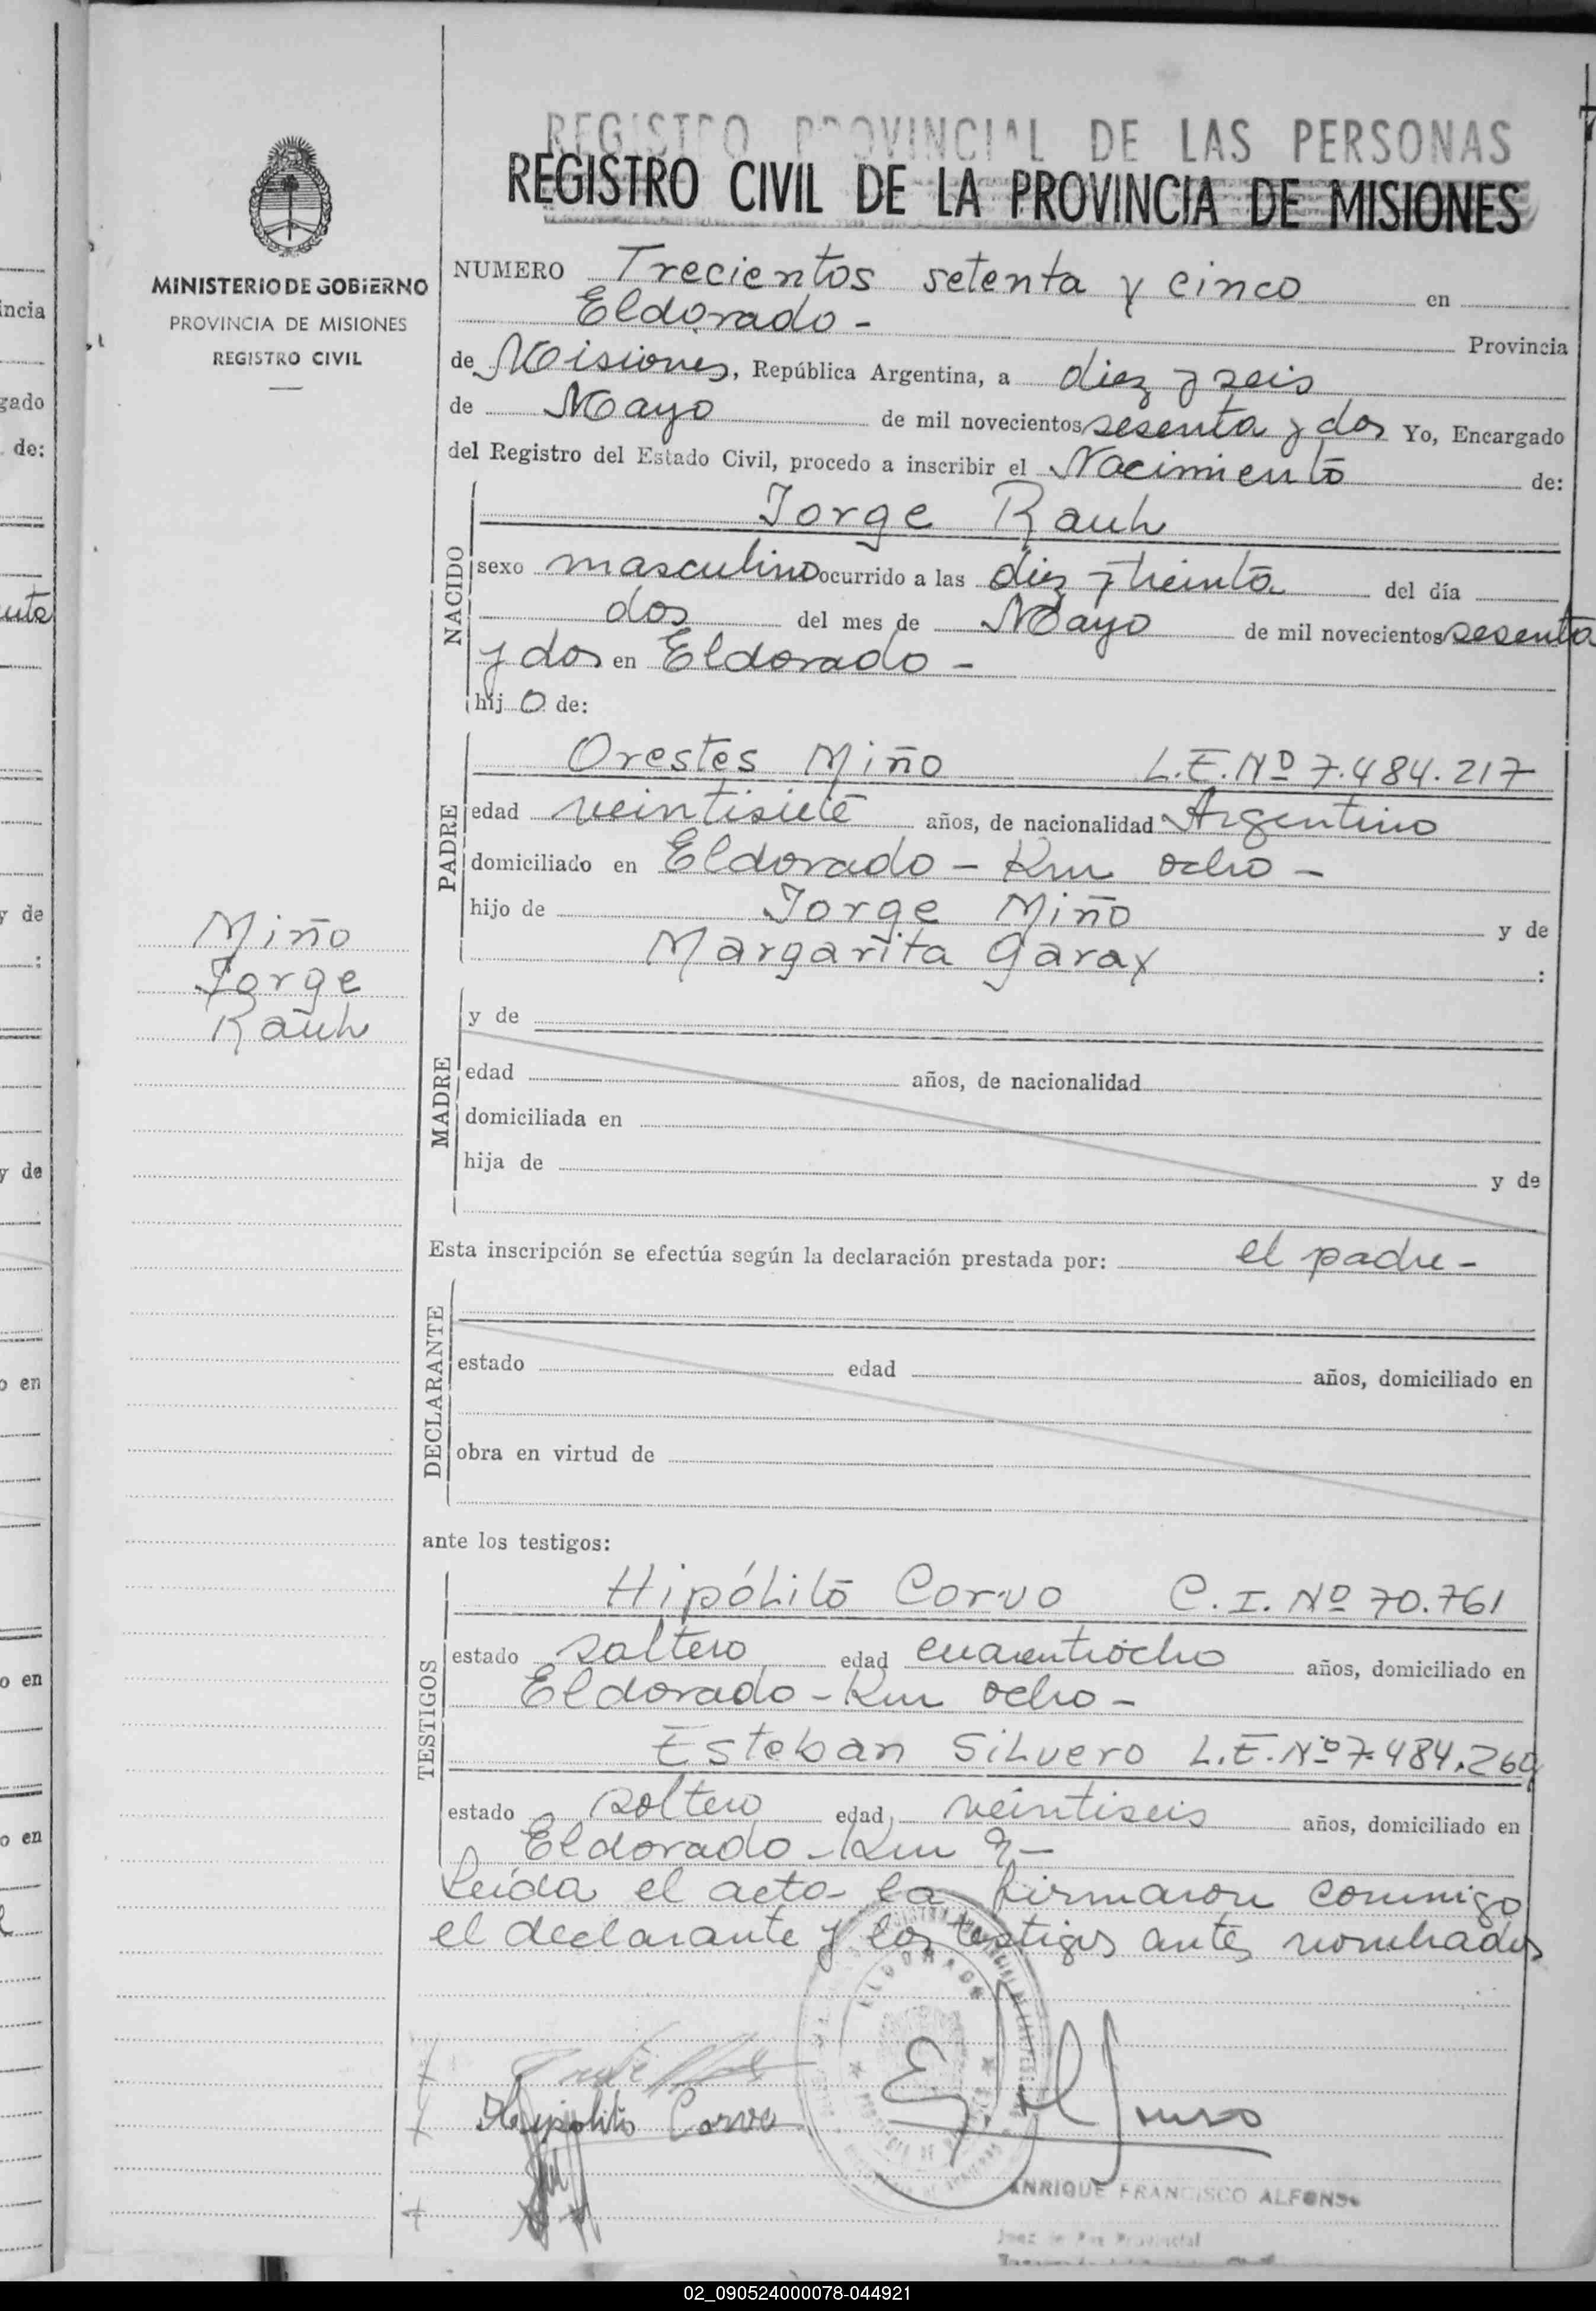 REGISTRO PROVINCIAL DE LAS PERSONAS
REGISTRO CIVIL DE LA PROVINCIA DE MISIONES
MINISTERIO DE GOBIERNO
PROVINCIA DE MISIONES
REGISTRO CIVIL
NUMERO Trecientos setenta y cinco en
Eldorado - Provincia
de Misiones, República Argentina, a diez y seis
de Mayo de mil novecientos sesenta y dos Yo, Encargado
del Registro del Estado Civil, procedo a inscribir el Nacimiento de:
NACIDO
Jorge Rauh
sexo masculino ocurrido a las diez y treinta del día
dos del mes de Mayo de mil novecientos sesenta
y dos en Eldorado -
hij o de:
PADRE
Orestes Miño L.E. Nº 7.484.217
edad veintisiete años, de nacionalidad Argentino
domiciliado en Eldorado - Km ocho -
hijo de Jorge Miño y de
Margarita Garay :
Miño
Jorge
Rauh
MADRE
y de
edad años, de nacionalidad
domiciliada en
hija de y de
Esta inscripción se efectúa según la declaración prestada por: el padre -
DECLARANTE
estado edad años, domiciliado en
obra en virtud de
ante los testigos:
TESTIGOS
Hipólito Corvo C.I. Nº 70.761
estado soltero edad cuarentiocho años, domiciliado en
Eldorado - Km ocho -
Esteban Silvero L.E. Nº 7.484.269
estado soltero edad veintiseis años, domiciliado en
Eldorado - Km 9 -
Leida el acta la firmaron conmigo
el declarante y los testigos antes nombrados
ELDORADO
Hipolito Corvo
ENRIQUE FRANCISCO ALFONSO
Juez de Paz Provincial
ncia
gado
de:
y de
:
y de
o en
o en
o en
02_090524000078-044921